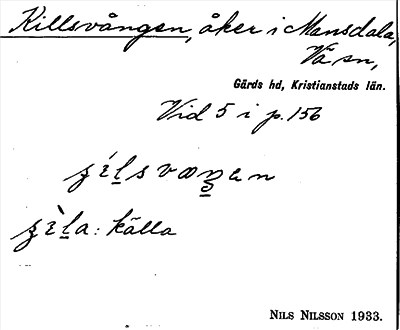 Killsvången, åker i Mansdala,
Vä sn,
Gärds hd, Kristianstads län.
Vid 5 i p. 156
: källa
NILS NILSSON 1933.